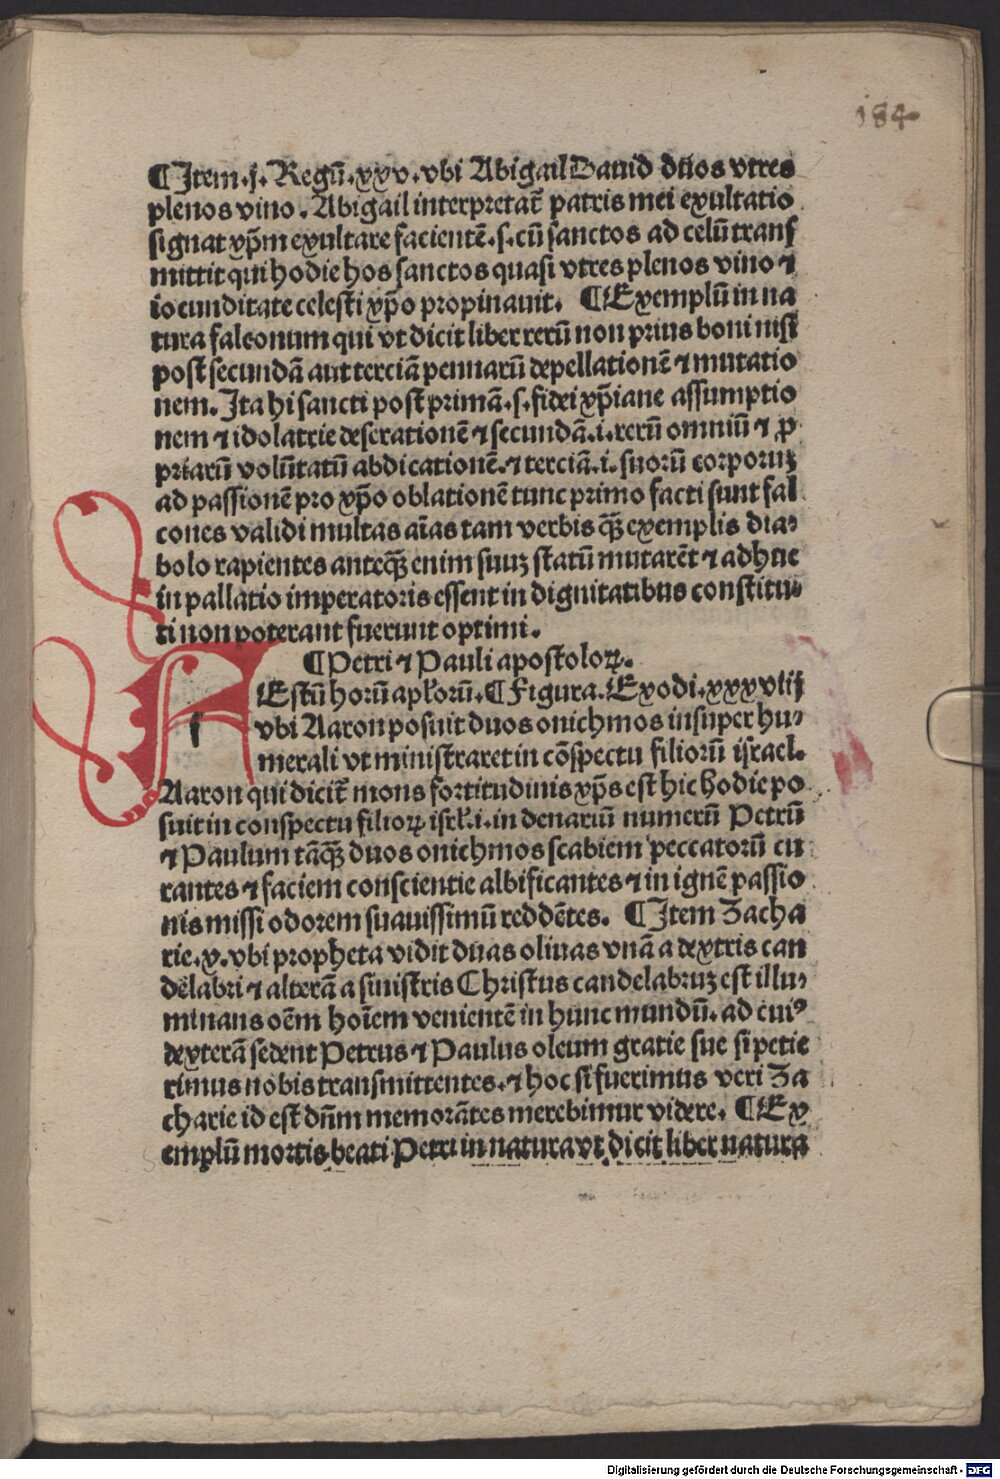 184
¶Item.j.Regū.xxv.vbi Abigail Dauid duos vtres
plenos vino. Abigail interpretat̄ patris mei exultatio
signat xp̄m exultare facientē.s.cū sanctos ad celū transſ
mittit qui hodie hos sanctos quasi vtres plenos vino ⁊
iocunditate celesti xp̄o propinauit. ¶Exemplū in na
tura falconum qui vt dicit liber rerū non prius boni nisi
post secundā aut terciā pennarū depellationē ⁊ mutatio
nem. Ita hi sancti post primā.s.fidei xp̄iane assumptio
nem ⁊ idolatrie deserationē ⁊ secundā.i.rerū omniū ⁊ ꝓ
priarū volūtatū abdicationē.⁊ terciā.i.suorū corporuꝫ
ad passionē pro xp̄o oblationē tunc primo facti sunt fal
cones validi multas aīas tam verbis qꝫ̄ exemplis dia⸗
bolo rapientes anteqꝫ̄ enim suuꝫ statū mutarēt ⁊ adhuc
in pallatio imperatoris essent in dignitatibus constitu⸗
ti non poterant fuerunt optimi.
¶Petri ⁊ Pauli apostoloꝝ.
FEstū horū apl̄orū.¶Figura.Exodi.xxxviij
vbi Aaron posuit duos onichmos in super hu⸗
merali vt ministraret in cōspectu filiorū israel.
Aaron qui dicit̄ mons fortitudinis xp̄s est hic hodie po
suit in conspectu filioꝝ isrl̄.i.in denariū numerū Petrū
⁊ Paulum tāqꝫ̄ duos onichmos scabiem peccatorū cu
rantes ⁊ faciem conscientie albificantes ⁊ in ignē passio
nis missi odorem suauissimū reddētes. ¶Item Zacha
rie.v.vbi propheta vidit duas oliuas vnā a dextris can
delabri ⁊ alterā a sinistris Christus candelabruꝫ est illu⸗
minans oēm hoīem venientē in hunc mundū.ad cuiꝰ
dexterā sedent Petrus ⁊ Paulus oleum gratie sue si petie
rimus nobis transmittentes.⁊ hoc si fuerimus veri Za
charie id est dn̄m memorātes merebimur videre. ¶Ex
emplū mortis beati Petri in natura vt dicit liber natura
Digitalisierung gefördert durch die Deutsche Forschungsgemeinschaft - DFG